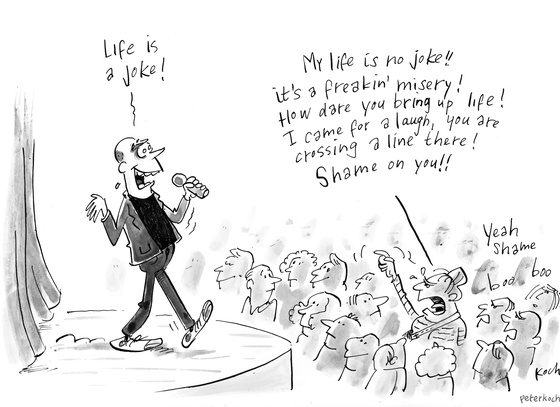 Life is
a joke!
My life is no joke!!
it's a freakin' misery!
How dare you bring up life!
I came for a laugh, you are
crossing a line there!
Shame on you!!
Yeah
Shame
boo boo
Koch
peterkoch